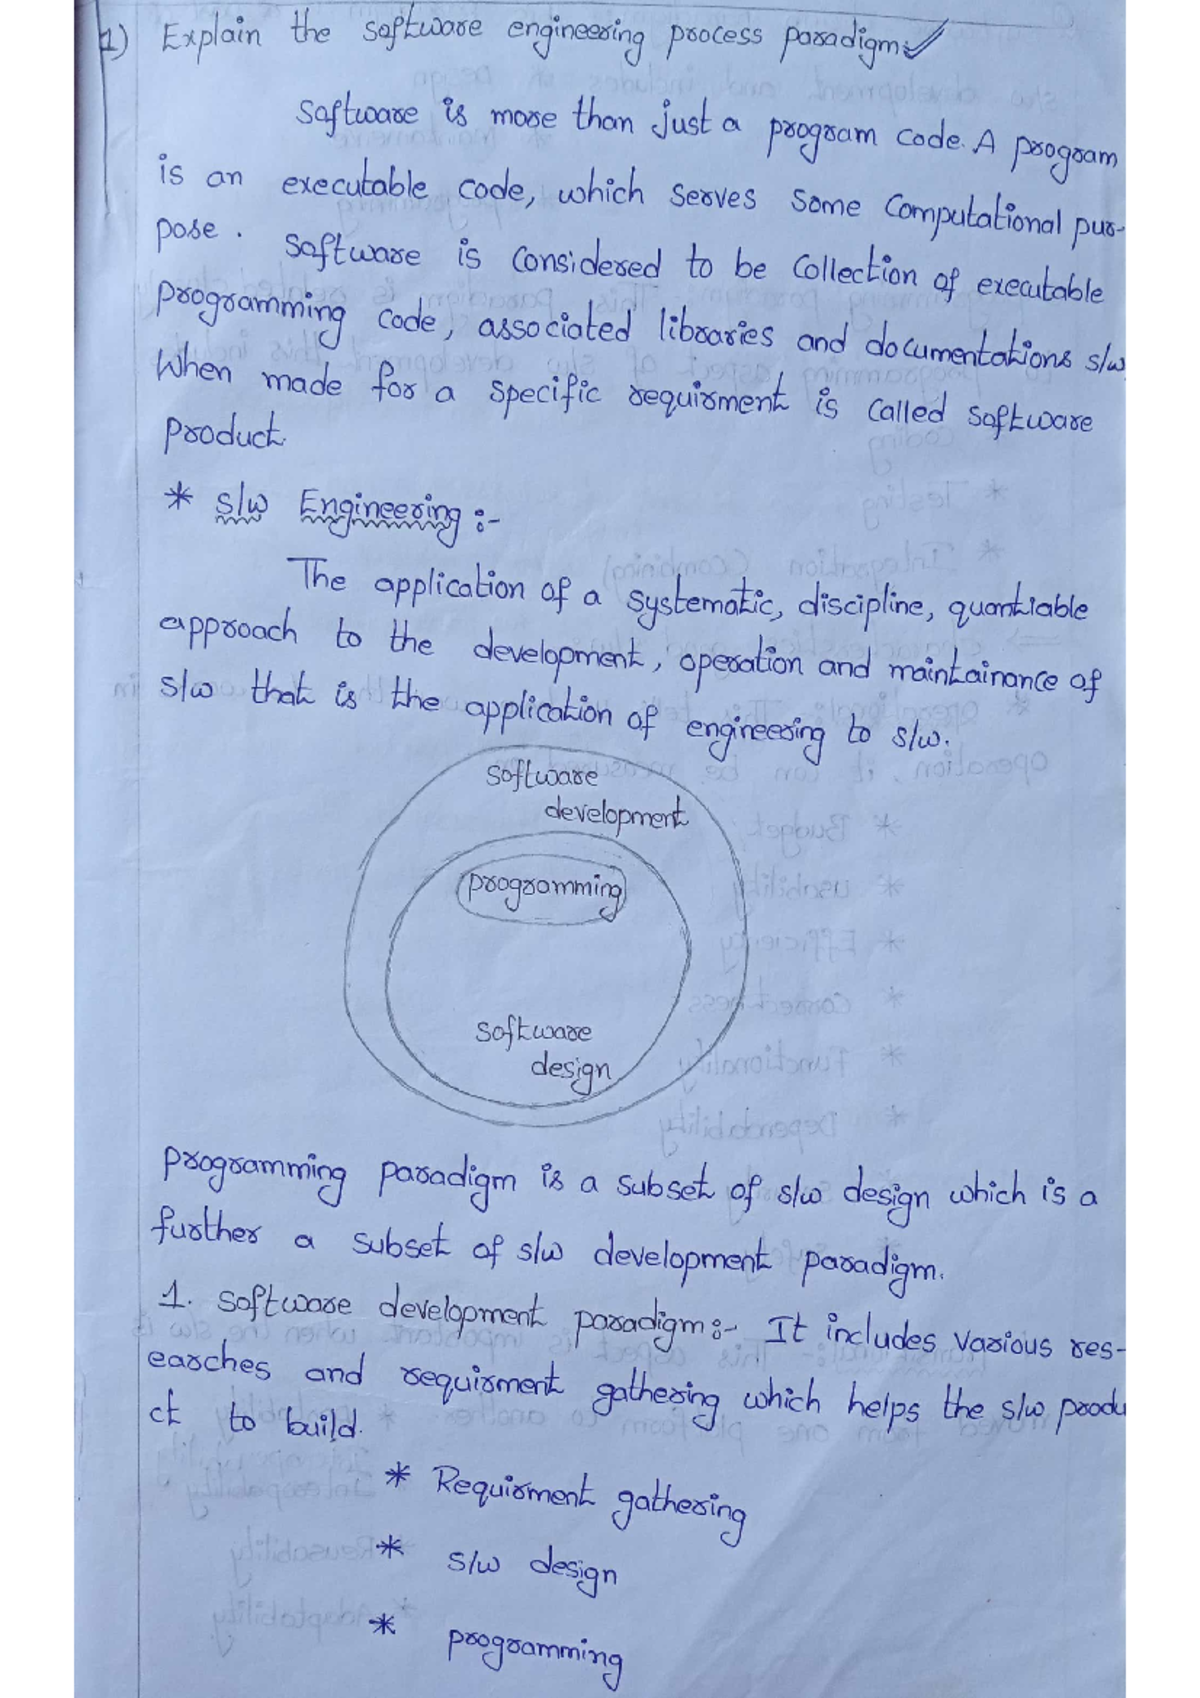 1) Explain the software engineering process paradigm:
Software is more than just a program code. A program
is an executable code, which serves some Computational pur-
pose. Software is Considered to be Collection of executable
programming code, associated libraries and documentations s/w
When made for a specific requirment is Called software
product.
* s/w Engineering :-
The application of a systematic, discipline, quantiable
approach to the development, operation and maintainance of
s/w that is the application of engineering to s/w.
software
development
programming
software
design
programming paradigm is a subset of s/w design which is a
further a subset of s/w development paradigm.
1. software development paradigm :- It includes Various res-
earches and requirment gathering which helps the s/w produ
ct to build.
* Requirment gathering
* s/w design
* programming